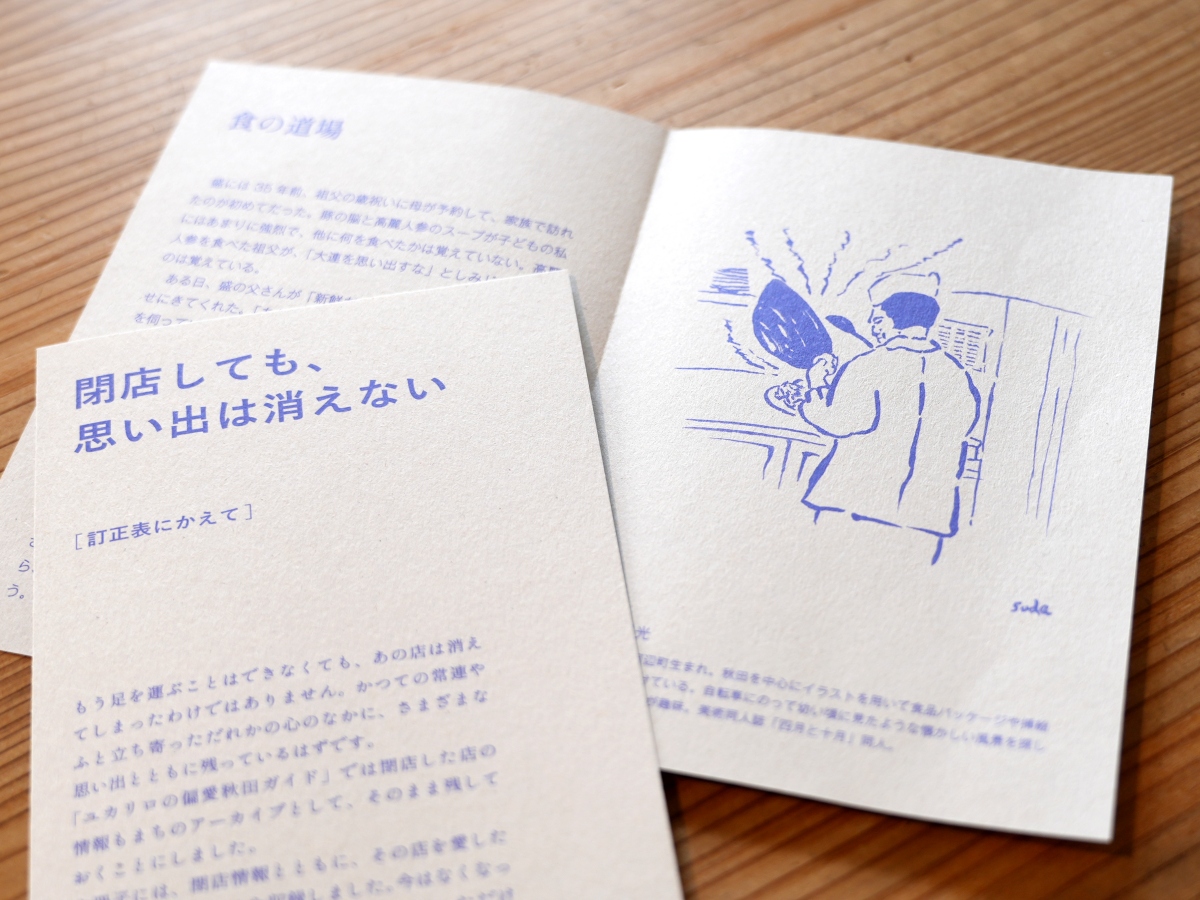 食の道場
盛には35年前、祖父の歳祝いに母が予約して、家族で訪れ
たのが初めてだった。豚の脳と高麗人参のスープが子どもの私
にはあまりに強烈で、他に何を食べたかは覚えていない。高麗
人参を食べた祖父が、「大連を思い出すな」としみ
のは覚えている。
ある日、盛の父さんが「新鮮
せにきてくれた。「
を伺って
ら
う。
閉店しても、
思い出は消えない
[訂正表にかえて]
もう足を運ぶことはできなくても、あの店は消え
てしまったわけではありません。かつての常連や
ふと立ち寄っただれかの心のなかに、さまざまな
思い出とともに残っているはずです。
『ユカリロの偏愛秋田ガイド』では閉店した店の
情報もまちのアーカイブとして、そのまま残して
おくことにしました。
には、閉店情報とともに、その店を愛した
しました。今はなくなっ
suda
光
辺町生まれ。秋田を中心にイラストを用いて食品パッケージや挿絵
けている。自転車にのって幼い頃に見たような懐かしい風景を探し
が趣味。美術同人誌「四月と十月」同人。